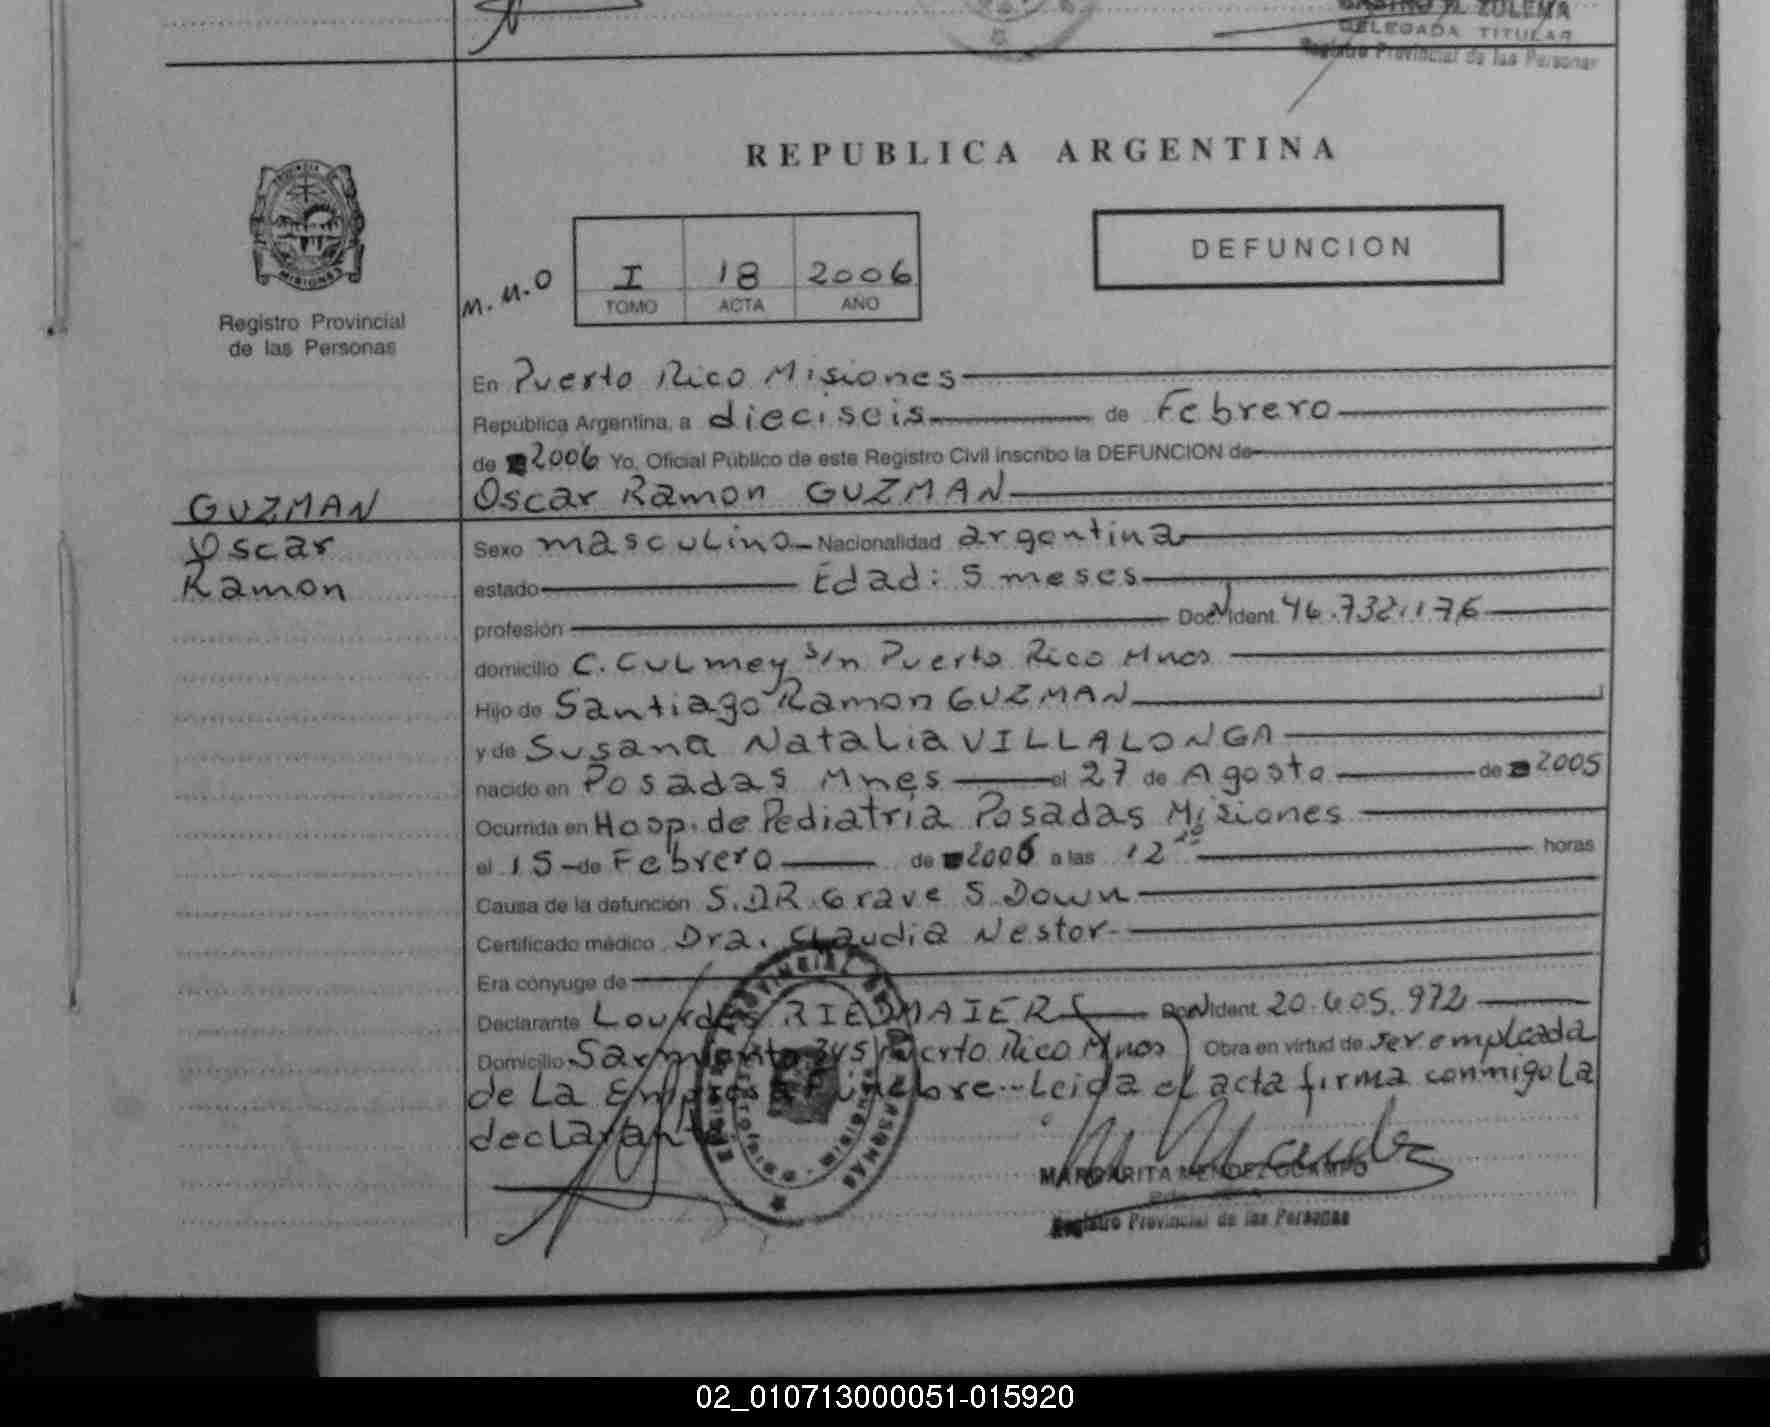 CASTRO M. ZULEMA
DELEGADA TITULAR
Registro Provincial de las Personas
REPUBLICA ARGENTINA
DEFUNCION
M.M.O
I 18 2006
TOMO ACTA AÑO
MISIONES
Registro Provincial
de las Personas
En Puerto Rico Misiones
República Argentina, a dieciseis de Febrero
de 2006 Yo, Oficial Público de este Registro Civil inscribo la DEFUNCION de
GUZMAN
Oscar
Ramon
Oscar Ramon GUZMAN
Sexo masculino Nacionalidad argentina
estado Edad: 5 meses
profesión Doc. Ident. 46.732.176
domicilio C. Culmey s/n Puerto Rico Mnes
Hijo de Santiago Ramon GUZMAN
y de Susana Natalia VILLALONGA
nacido en Posadas Mnes el 27 de Agosto de 2005
Ocurrida en Hosp. de Pediatria Posadas Misiones
el 15 de Febrero de 2006 a las 12 horas
Causa de la defunción S.DR. Grave S. Down
Certificado médico Dra. Claudia Nestor
Era cónyuge de
Declarante Lourdes RIEDMAIER Ident. 20.605.972
Domicilio Sarmiento Puerto Rico Mnes Obra en virtud de ser empleada
de La Empresa Funebre -- Leida el acta firma conmigo La
declarante
MARGARITA MENDEZ OCAMPO
Registro Provincial de las Personas
02_010713000051-015920